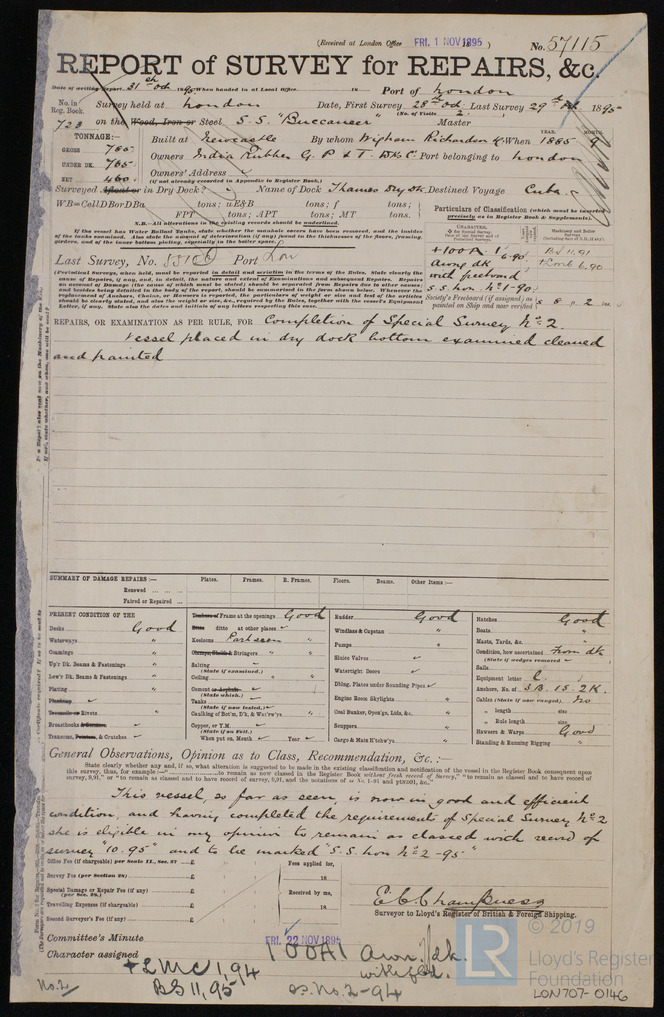 (Received at London Office FRI. 1 NOV 1895 18 ) No. 57115
REPORT of SURVEY for REPAIRS, &c.
Date of writing Report 31st Oct 1895 When handed in at Local Office 18 Port of London
No. in Reg. Book. Survey held at London Date, First Survey 28th Oct. Last Survey 29th Oct 1895
(No. of Visits 2.)
723 on the Wood, Iron or Steel S.S. "Buccaneer" Master
TONNAGE:—
GROSS 785
UNDER DK. 765
NET 460
Built at Newcastle By whom Wigham Richardson & Co When YEAR. 1885 MONTH. 9
Owners India Rubber G. P & T. Wks Co Port belonging to London
Owners' Address
(if not already recorded in Appendix to Register Book.)
Surveyed Afloat or in Dry Dock? Name of Dock Thames Dry Dk. Destined Voyage Cuba
WB=CellDBorDBa tons; uE&B tons; f tons;
FPT tons; APT tons; MT tons.
N.B.—All alterations in the existing records should be underlined.
If the vessel has Water Ballast Tanks, state whether the manhole covers have been removed, and the insides of the tanks examined. Also state the amount of deterioration (if any) found in the thicknesses of the floors, framing, girders, and of the inner bottom plating, especially in the boiler space.
Particulars of Classification (which must be inserted precisely as in Register Book & Supplements).
Last Survey, No. Port Lon
(Periodical Surveys, when held, must be reported in detail and seriatim in the terms of the Rules. State clearly the cause of Repairs, if any, and, in detail, the nature and extent of Examinations and subsequent Repairs. Repairs on account of Damage (the cause of which must be stated) should be separated from Repairs due to other causes; and besides being detailed in the body of the report, should be summarised in the form shown below.
+100 A 1 6.90
Awng dk
with freeboard
S.S. Lon. No 1-90
BS 11.91
+LMC 6.90
Society's Freeboard (if assigned) as painted on Ship and now verified 8 2
REPAIRS, OR EXAMINATION AS PER RULE, FOR Completion of Special Survey No 2.
Vessel placed in dry dock bottom examined cleaned
and painted
SUMMARY OF DAMAGE REPAIRS:— Plates. Frames. R. Frames. Floors. Beams. Other Items:—
Renewed
Faired or Repaired
PRESENT CONDITION OF THE
Decks Good
Waterways "
Comings "
Up'r Dk. Beams & Fastenings "
Low'r Dk. Beams & Fastenings "
Plating "
Planking
Treenails or Rivets "
Breasthooks & Stemson "
Transoms, Pointers, & Crutches
Timbers or Frame at the openings Good
Ditto ditto at other places
Keelsons Part seen "
Clamps, Shelfs & Stringers " "
Salting
(State if examined.)
Ceiling "
Cement or Asphalt
(State which.)
Tanks
(State if now tested.)
Caulking of Bot'm, D'k, & Wat'rw'ys
Copper, or Y.M.
(State if on Felt.)
When put on, Month Year
Rudder Good
Windlass & Capstan "
Pumps "
Sluice Valves
Watertight Doors
Dblng. Plates under Sounding Pipes
Engine Room Skylights "
Coal Bunker, Open'gs, Lids, &c. "
Scuppers "
Cargo & Main H'tchw'ys "
Hatches Good
Boats "
Masts, Yards, &c. "
Condition, how ascertained From dk
(State if wedges removed)
Sails
Equipment letter
Anchors, No. of 3B. 1S. 2K.
Cables (State if now ranged) No
" length size
" Rule length size
Hawsers & Warps Good
Standing & Running Rigging "
General Observations, Opinion as to Class, Recommendation, &c. :—
State clearly whether any, and if so, what alteration is suggested to be made in the existing classification and notification of the vessel in the Register Book consequent upon this survey, thus, for example:—
This vessel, so far as seen, is now in good and efficient
condition, and having completed the requirements of Special Survey No 2
she is eligible in my opinion to remain as classed with record of
survey "10.95" and to be marked "S.S. Lon No 2-95"
Office Fee (if chargeable) per Scale II., Sec. 27 £ Fees applied for,
Survey Fee (per Section 28) £ 18
Special Damage or Repair Fee (if any) £
(per Sec. 28.)
Received by me,
Travelling Expenses (if chargeable) £ 18
Second Surveyor's Fee (if any) £
E. C. Champness
Surveyor to Lloyd's Register of British & Foreign Shipping.
Committee's Minute FRI. 22 NOV 1895
Character assigned 100A1 Awn. dk.
with fbd.
+LMC 1,94
BS 11,95
ss. No. 2-94
No. 2
© 2019
LR Lloyd's Register
Foundation
LON707-0146